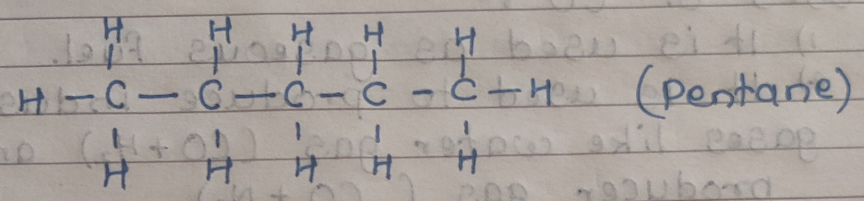 H H H H H
H – C – C – C – C – C – H (Pentane)
H H H H H